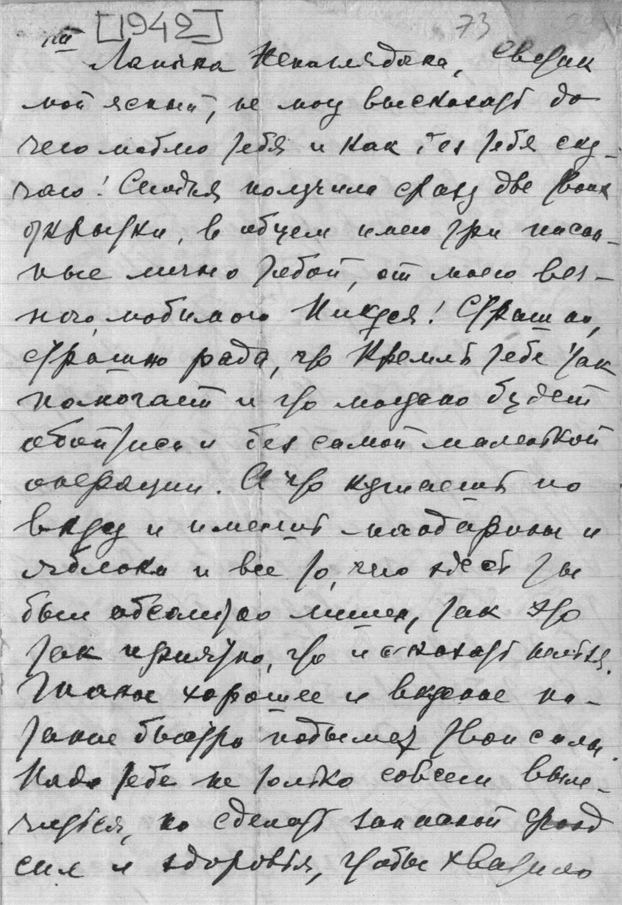 [1942] 73
Лапочка Ненаглядная,
мой ясный, не могу высказать до
чего люблю тебя и как без тебя ску-
чаю! Сегодня получила сразу две твоих
открытки, в общем имею три писан-
ные лично тобой, от моего
любимого! Страшно,
страшно рада, что Кремль тебе так
помогает и что можно будет
обойтись и без самой маленькой
операции. А что кушаешь по
вкусу и имеешь мандарины и
яблоки и все то, чего здесь ты
был абсолютно лишен, так это
так приятно, что и сказать нельзя.
Такое хорошее и вкусное пи-
тание быстро подымет твои силы.
Надо тебе не только совсем выле-
читься, но сделать запасной фонд
сил и здоровья, чтобы хватило